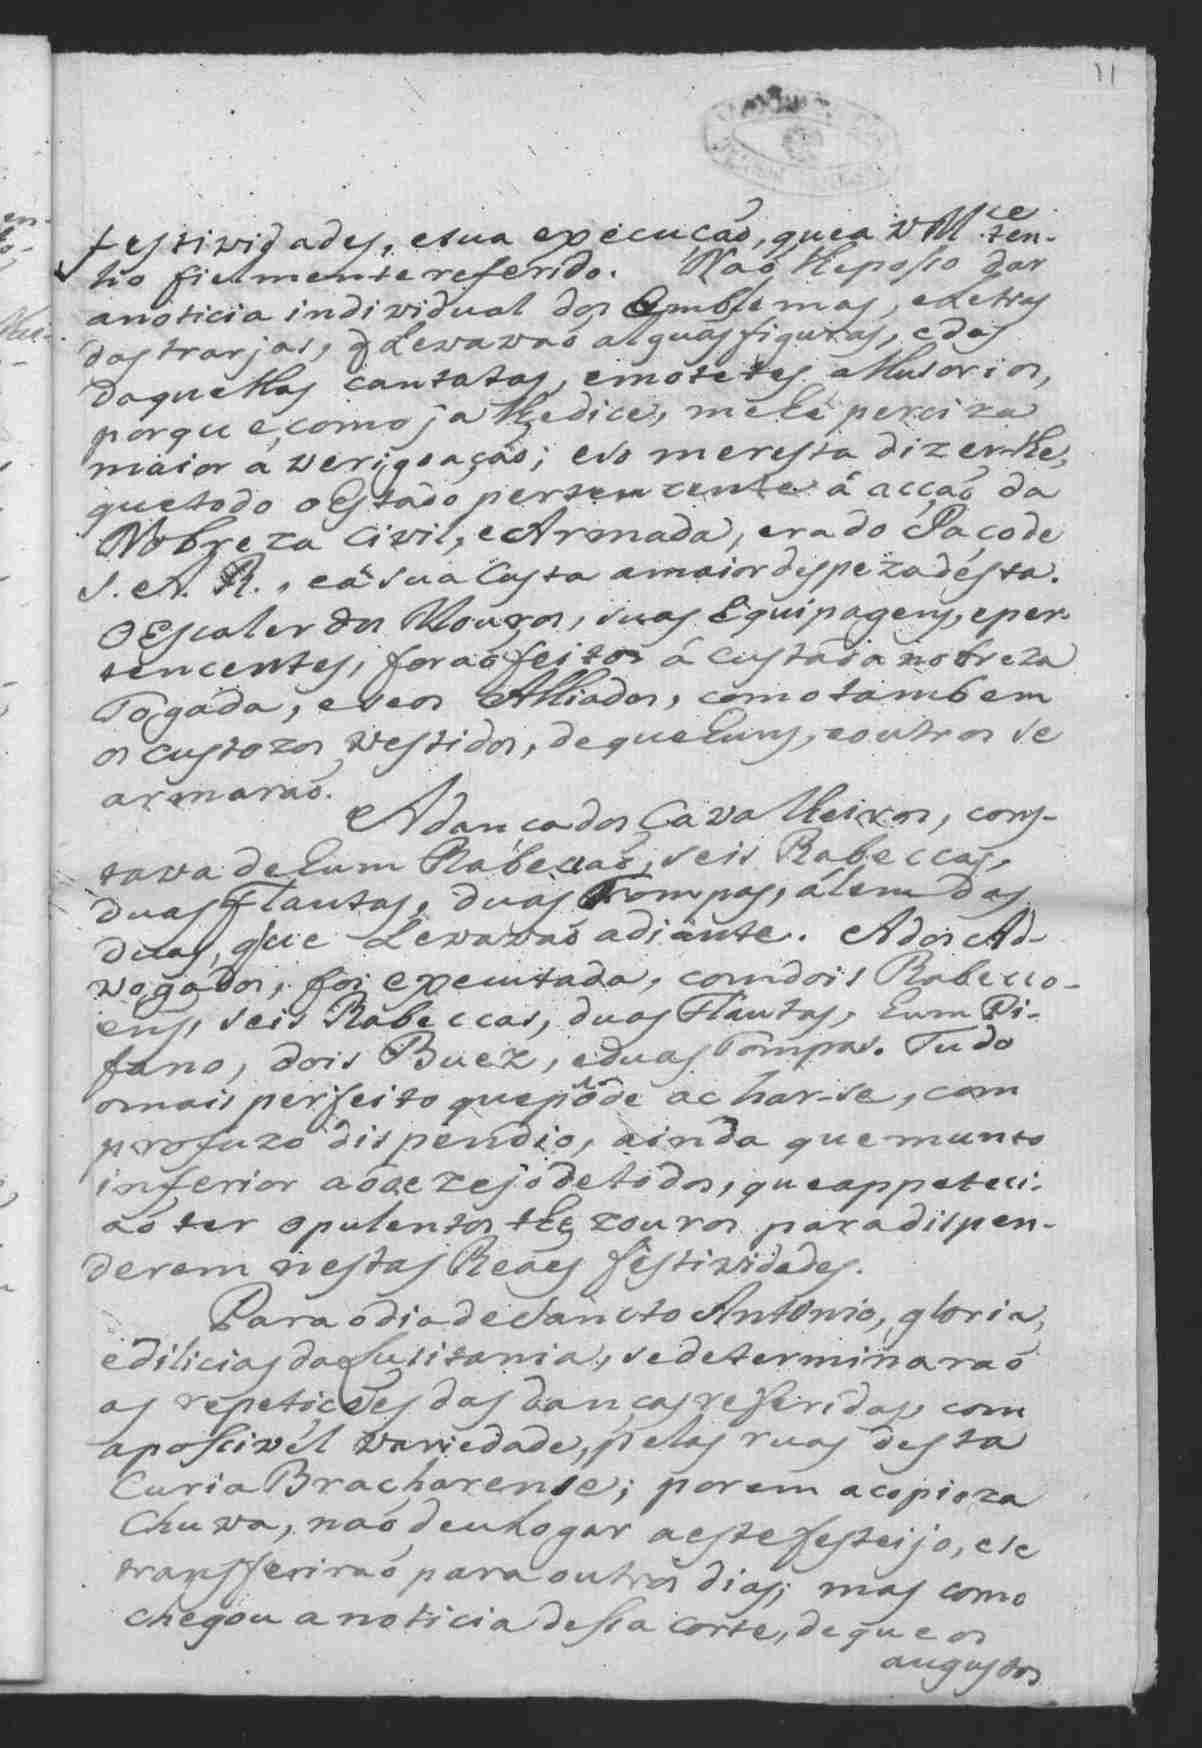 11
festividades, esua execucaõ, quea VM.ce ten-
ho fielmente referido. Naõ lhe posso dar
anoticia individual dos Emblemas, eLetras
das tarjas, q̃ Levavaõ alguãs figuras, edas
daquellas cantatas, emotetes allusorios,
porque, como ja lhe dice, me hé perciza
maior áverigoaçaõ; eso meresta dizer-lhe,
quetodo oEstádo pertencente á acçaõ da
Nobreza Civil, eArmada, era do Paço de
S. A. R., eásua Custa amaior despeza désta.
OEscaler dos Mouros, suas Equipagens, eper-
tencentes, foraõ feitos á custa da nobreza
Togáda, eseos Alliados, como tambem
os custozos vestidos, dequehuns, eoutros se
armaraõ.
Adança dos Cavalheiros, cons-
tava dehum Rabecaõ, seis Rabeccas,
duas Flautas, duas Trompas, álem das
duas, que Levavaõ adiante. Ados Ad-
vogádos, foi executada, comdois Rabecco-
ens, seis Rabeccas, duas Flautas, hum Pi-
fano, dois Buez, eduas Tompas. Tudo
omais perfeito quepôde achar-se, com
profuzo dispendio, ainda que munto
inferior aodezejo detodos, queappeteci-
aõ ter opulentos thezouros para dispen-
derem nestas Reaes festividades.
Para odia de Sancto Antonio, gloria,
edilicias da Lusitania, sedeterminaraõ
as repetiçoẽs das danças referidas, com
apossivél variedade, pelas ruas desta
Curia Bracharense; porem acopioza
Chuva, naõ deu logar aeste festeijo, ese
transferiraõ para outros dias; mas como
chegou anoticia dessa Corte, deque os
augustos